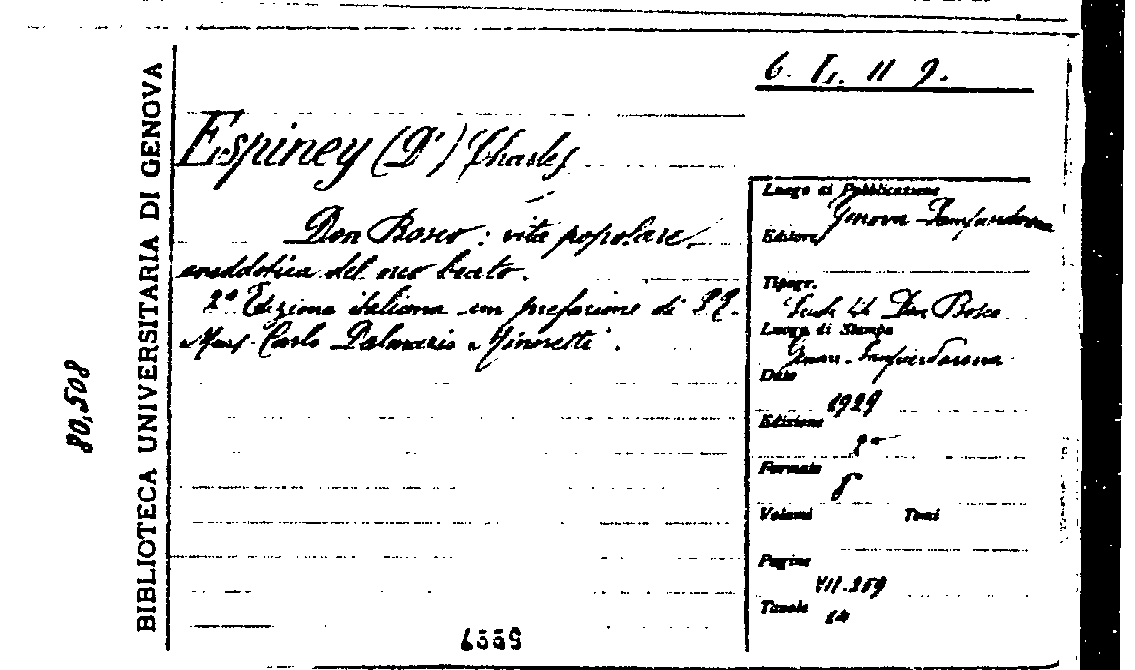 BIBLIOTECA UNIVERSITARIA DI GENOVA
80,508
6. I. 11 9.
Espiney (D') Charles
Don Bosco: vita popolare
aneddotica del neo beato.
2ª Edizione italiana con prefazione di S. E.
Mons. Carlo Dalmazio Minoretti.
Luogo di Pubblicazione
Genova-Sampierdarena
Editore
Tipogr.
Scuola tip. Don Bosco
Luogo di Stampa
Genova-Sampierdarena
Data
1929
Edizione
2ª
Formato
8
Volumi Tomi
Pagine
VII-259
Tavole
14